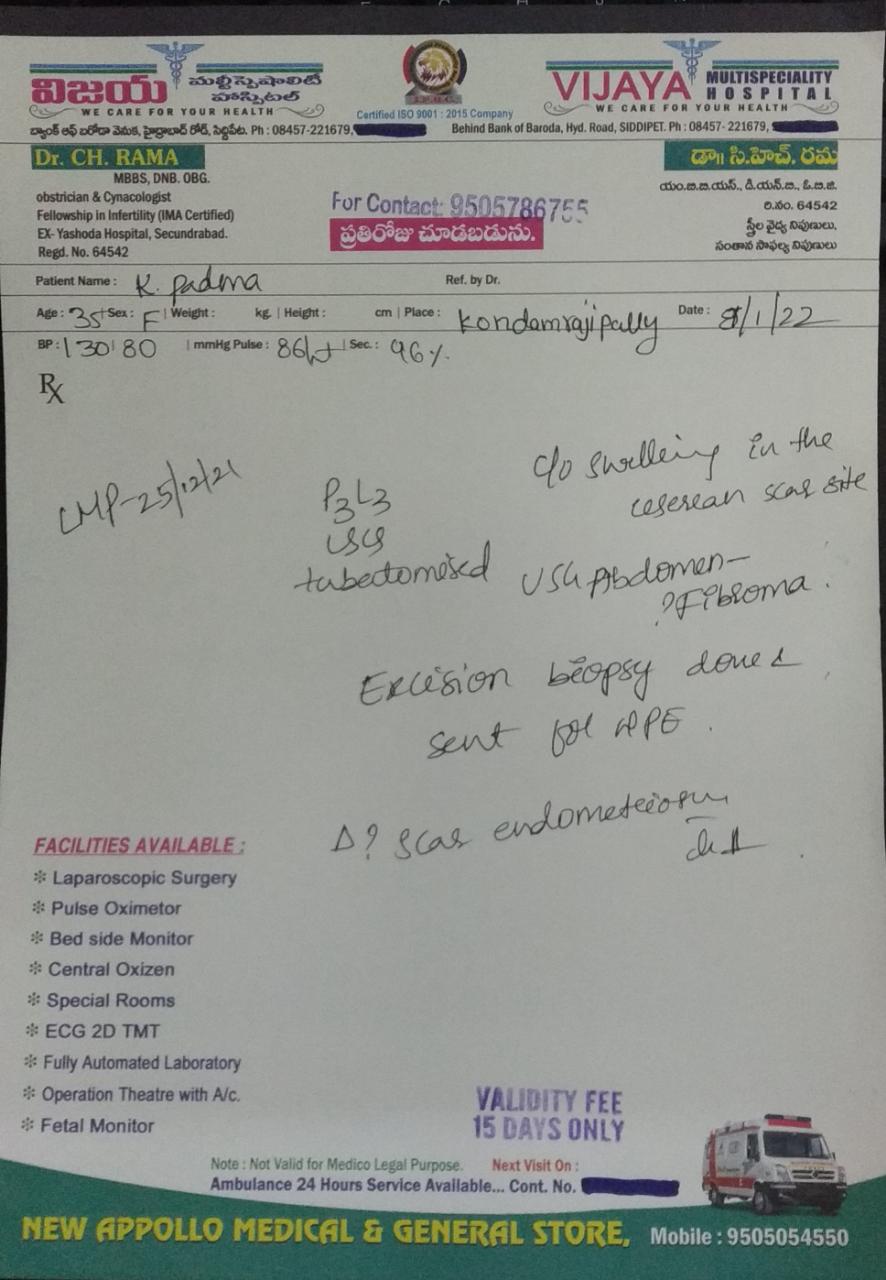 విజయ మల్టీస్పెషాలిటీ హాస్పిటల్
WE CARE FOR YOUR HEALTH
బ్యాంక్ ఆఫ్ బరోడా వెనుక, హైద్రాబాద్ రోడ్, సిద్దిపేట. Ph : 08457-221679,
Certified ISO 9001 : 2015 Company
VIJAYA MULTISPECIALITY HOSPITAL
WE CARE FOR YOUR HEALTH
Behind Bank of Baroda, Hyd. Road, SIDDIPET. Ph : 08457- 221679,
Dr. CH. RAMA
MBBS, DNB. OBG.
obstrician & Cynacologist
Fellowship in Infertility (IMA Certified)
EX- Yashoda Hospital, Secundrabad.
Regd. No. 64542
For Contact: 9505786755
ప్రతిరోజు చూడబడును.
డా॥ సి.హెచ్. రమ
యం.బి.బి.యస్., డి.యన్.బి., ఓ.బి.జి.
రి.నం. 64542
స్త్రీల వైద్య నిపుణులు,
సంతాన సాఫల్య నిపుణులు
Patient Name : K. Padma Ref. by Dr.
Age : 35 Sex : F | Weight : kg. | Height : cm | Place : Kondamrajipally Date : 8/1/22
BP : 130/80 | mmHg Pulse : 86 | Sec. : 96%
Rx
LMP-25/12/21
P3L3
LSCS
tubectomised
c/o swelling in the
ceserean scar site
USG Abdomen-
? Fibroma.
Excision biopsy done &
sent for HPE.
Δ? scar endometriosis
FACILITIES AVAILABLE :
* Laparoscopic Surgery
* Pulse Oximetor
* Bed side Monitor
* Central Oxizen
* Special Rooms
* ECG 2D TMT
* Fully Automated Laboratory
* Operation Theatre with A/c.
* Fetal Monitor
VALIDITY FEE
15 DAYS ONLY
Note : Not Valid for Medico Legal Purpose. Next Visit On :
Ambulance 24 Hours Service Available... Cont. No.
NEW APPOLLO MEDICAL & GENERAL STORE, Mobile : 9505054550